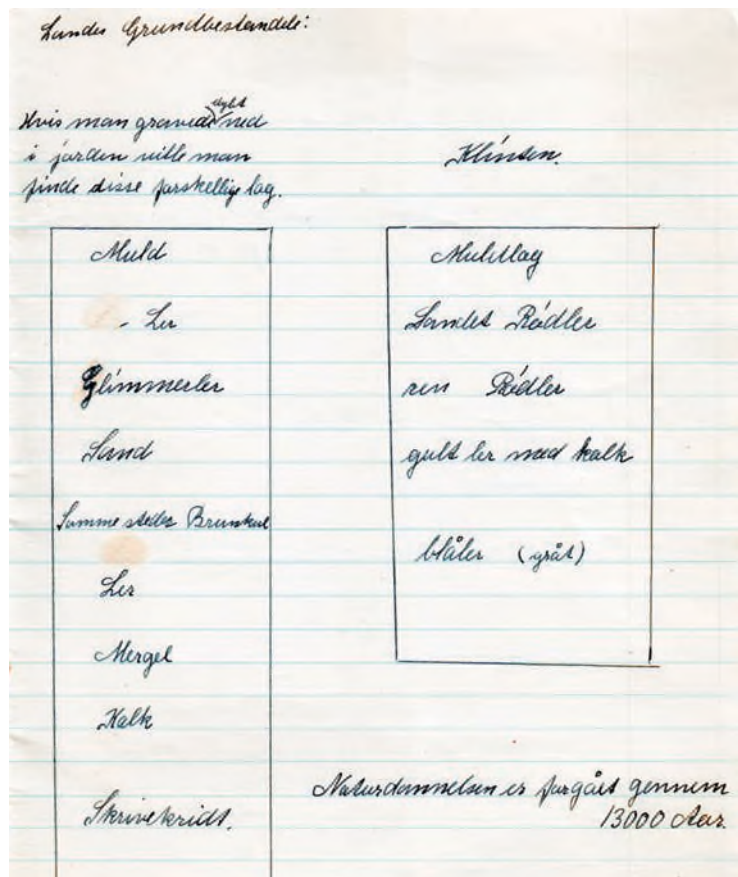 Landes Grundbestandele:
Hvis man gravede dybt ned
i jorden ville man
finde disse forskellige lag.
Muld
- Ler
Glimmerler
Sand
Somme steder Brunkul
Ler
Mergel
Kalk
Skrivekridt.
Klinten.
Muldlag
Sandet Rødler
ren Rødler
gult ler med kalk
blåler (gråt)
Naturdannelsen er forgået gennem
13000 Aar.